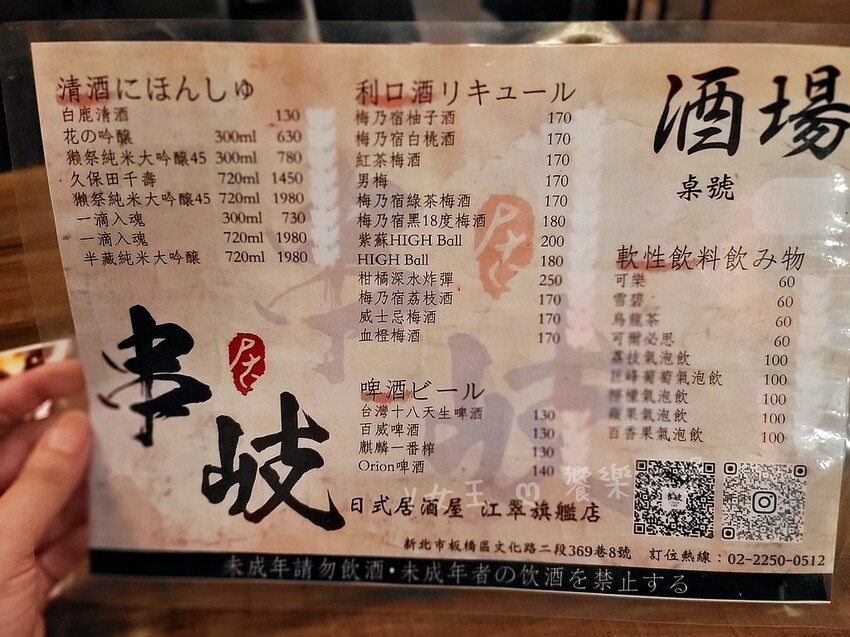 清酒にほんしゅ
白鹿清酒 130
花の吟醸 300ml 630
獺祭純米大吟醸45 300ml 780
久保田千壽 720ml 1450
獺祭純米大吟醸45 720ml 1980
一滴入魂 300ml 730
一滴入魂 720ml 1980
半藏純米大吟醸 720ml 1980
串
居
岐
利口酒リキュール
梅乃宿柚子酒 170
梅乃宿白桃酒 170
紅茶梅酒 170
男梅 170
梅乃宿綠茶梅酒 170
梅乃宿黑18度梅酒 180
紫蘇HIGH Ball 200
HIGH Ball 180
柑橘深水炸彈 250
梅乃宿荔枝酒 170
威士忌梅酒 170
血橙梅酒 170
啤酒ビール
台灣十八天生啤酒 130
百威啤酒 130
麒麟一番榨 130
Orion啤酒 140
酒場
桌號
軟性飲料飲み物
可樂 60
雪碧 60
烏龍茶 60
可爾必思 60
荔枝氣泡飲 100
巨峰葡萄氣泡飲 100
檸檬氣泡飲 100
蘋果氣泡飲 100
百香果氣泡飲 100
女王 饗樂
日式居酒屋 江翠旗艦店
新北市板橋區文化路二段369巷8號 訂位熱線：02-2250-0512
未成年請勿飲酒・未成年者の饮酒を禁止する